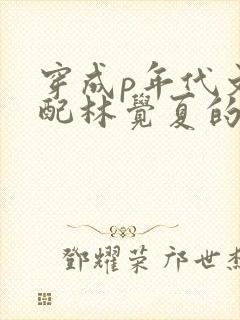 穿成p年代文
配林覺夏的
鄧耀荣 邝世杰